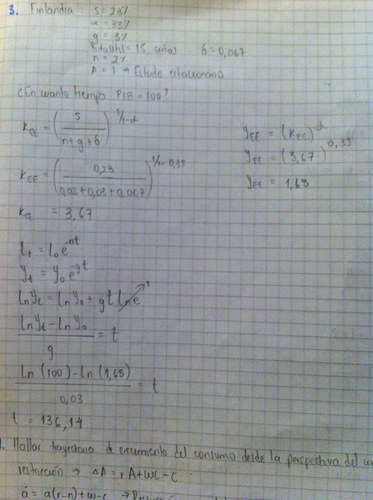 3. Finlandia: s = 23%
α = 33%
g = 3%
= 15 años δ = 0,067
n = 2%
A = 1 → Estado estacionario
¿En cuánto tiempo PIB = 100?
K_EE = (s / n+g+δ)^1/1-α
y_EE = (K_EE)^α
K_EE = (0,23 / 0,02+0,03+0,067)^1/1-0,33
y_EE = (3,67)^0,33
y_EE = 1,63
K_EE = 3,67
L_t = L_0 e^-nt
y_t = y_0 e^-g t
ln y_t = ln y_0 + gt ln e^1
ln y_t - ln y_0 / g = t
ln (100) - ln (1,63) / 0,03 = t
t = 136,14
Hallar trayectoria de crecimiento del consumo desde la perspectiva del
restricción → ΔA = rA + wL - C
ȧ = a(r-n) + w - c →